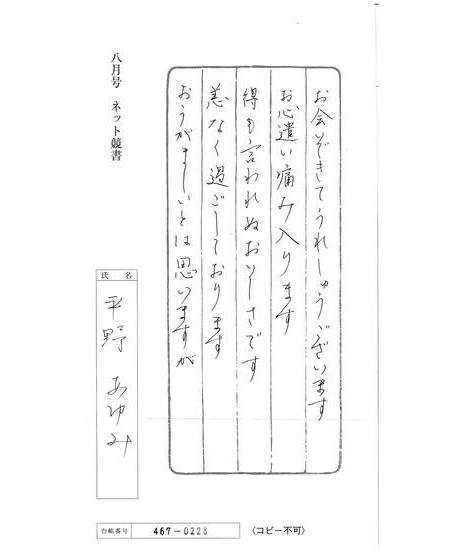 お会いできてうれしゅうございます
お心遣い痛み入ります
得も言われぬおいしさです
恙なく過ごしております
おこがましいとは思いますが
八月号 ネット競書
氏名
平野 あゆみ
台帳番号 467-0228
〈コピー不可〉